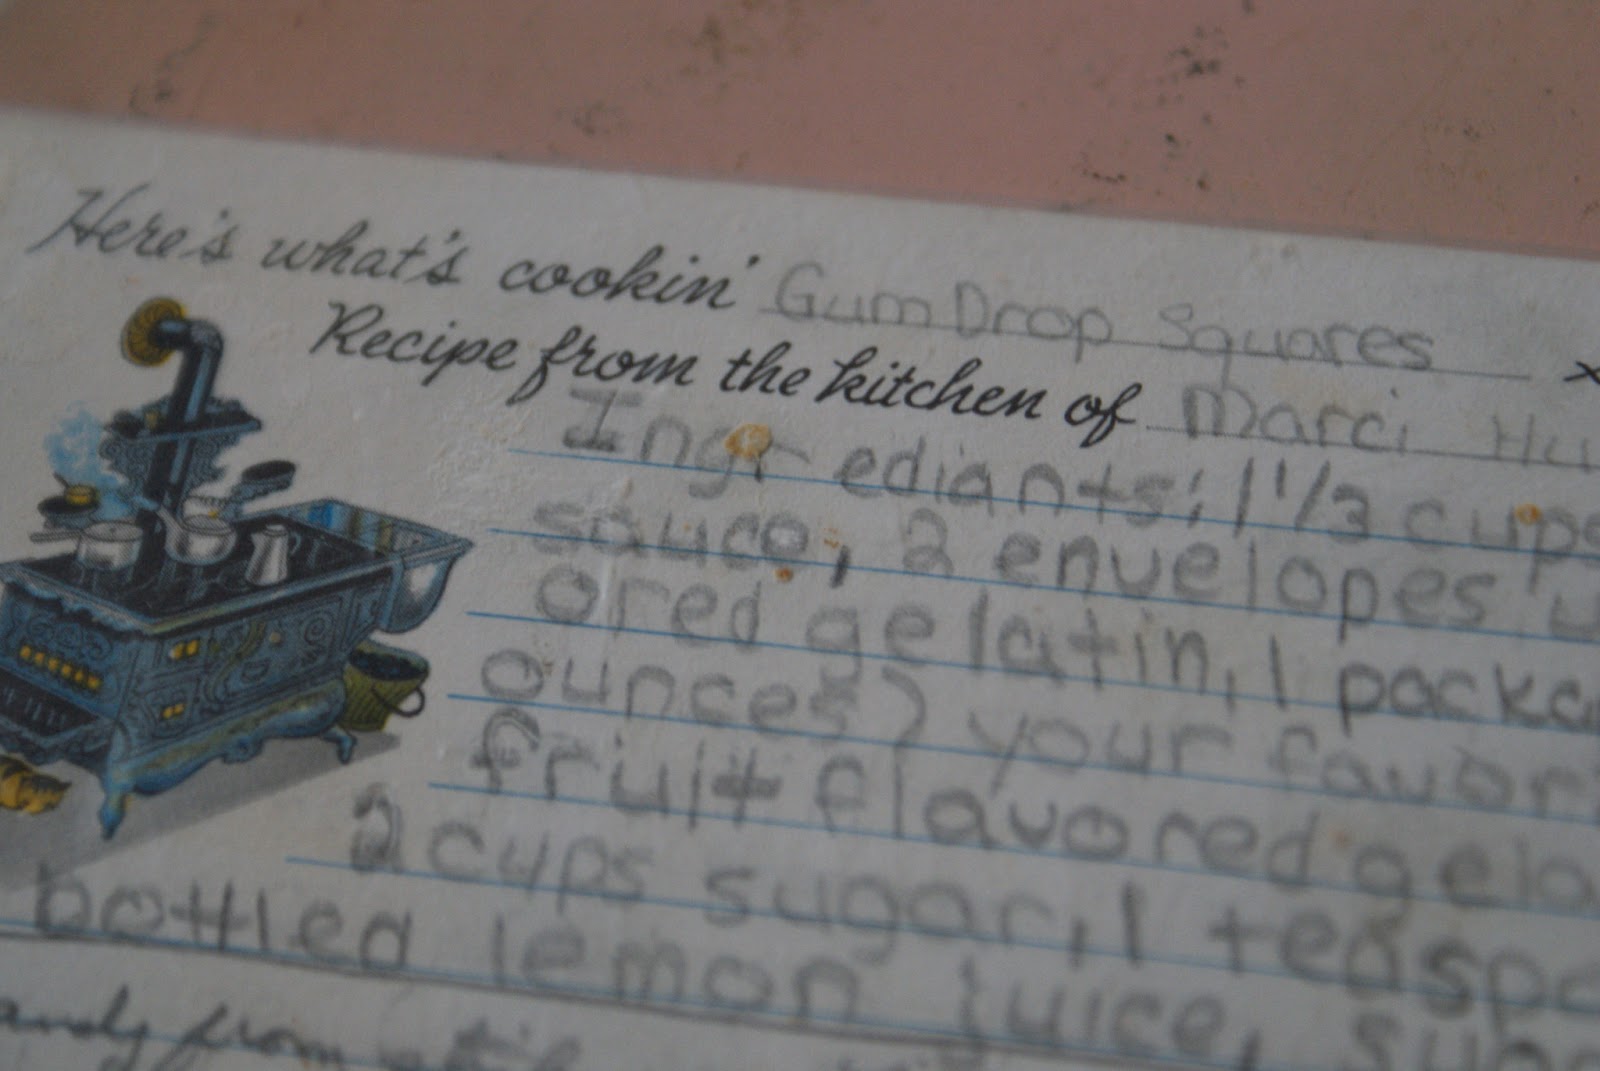 Here's what's cookin' Gum Drop Squares
Recipe from the kitchen of Marci Hu
Ingrediants: 1 1/3 cups
sauce, 2 envelopes u
ored gelatin, 1 packa
ounces) your favori
fruit flavored gela
2 cups sugar, 1 teaspo
bottled lemon juice, suga
andy from